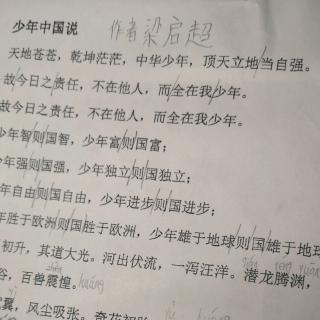 少年中国说 作者梁启超
天地苍苍，乾坤茫茫，中华少年，顶天立地当自强。
故今日之责任，不在他人，而全在我少年。
故今日之责任，不在他人，而全在我少年。
少年智则国智，少年富则国富；
年强则国强，少年独立则国独立；
年自由则国自由，少年进步则国进步；
年胜于欧洲则国胜于欧洲，少年雄于地球则国雄于地球
初升，其道大光。河出伏流，一泻汪洋。潜龙腾渊，
谷，百兽震惶。huáng
翼，风尘吸张。